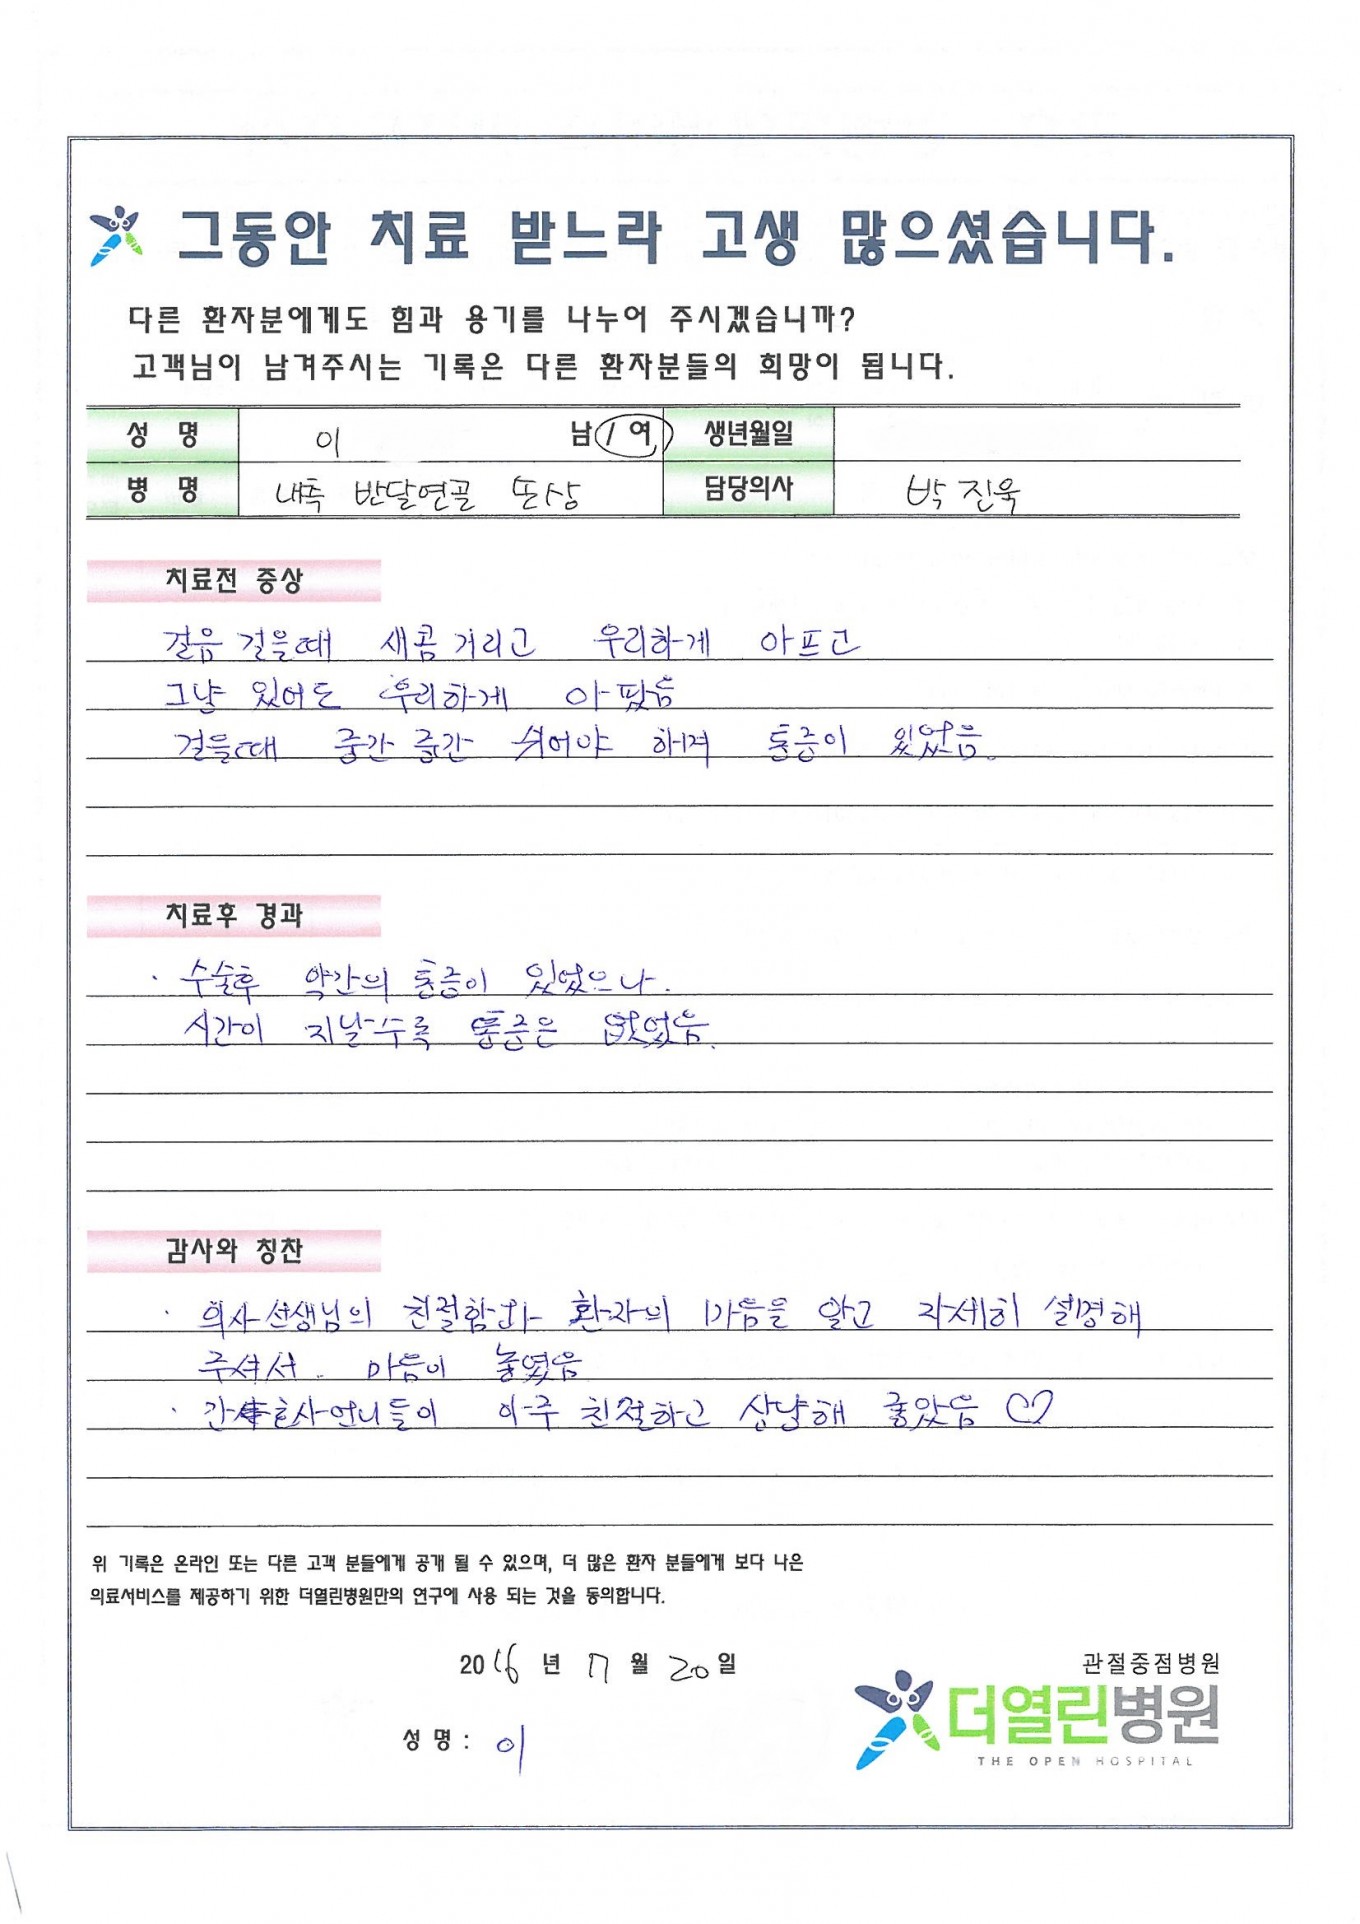 그동안 치료 받느라 고생 많으셨습니다.
다른 환자분에게도 힘과 용기를 나누어 주시겠습니까?
고객님이 남겨주시는 기록은 다른 환자분들의 희망이 됩니다.
성 명 이 남 / 여 생년월일
병 명 내측 반달연골 손상 담당의사 박진욱
치료전 증상
걸음 걸을때 새콤거리고 우리하게 아프고
그냥 있어도 우리하게 아팠음
걸을때 중간 중간 쉬어야 하며 통증이 있었음.
치료후 경과
· 수술후 약간의 통증이 있었으나.
시간이 지날수록 통증은 없었음.
감사와 칭찬
· 의사선생님의 친절함과 환자의 마음을 알고 자세히 설명해
주셔서. 마음이 놓였음
· 간호사언니들이 아주 친절하고 상냥해 좋았음 ♡
위 기록은 온라인 또는 다른 고객 분들에게 공개 될 수 있으며, 더 많은 환자 분들에게 보다 나은
의료서비스를 제공하기 위한 더열린병원만의 연구에 사용 되는 것을 동의합니다.
2016 년 7 월 20 일
관절중점병원
더열린병원
THE OPEN HOSPITAL
성 명 : 이